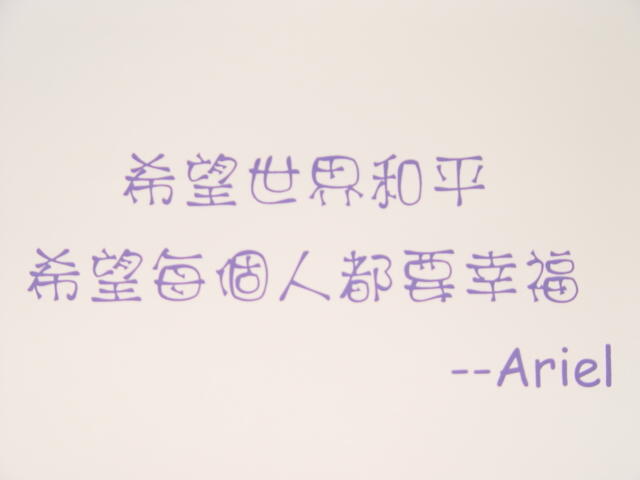 希望世界和平
希望每個人都要幸福
--Ariel